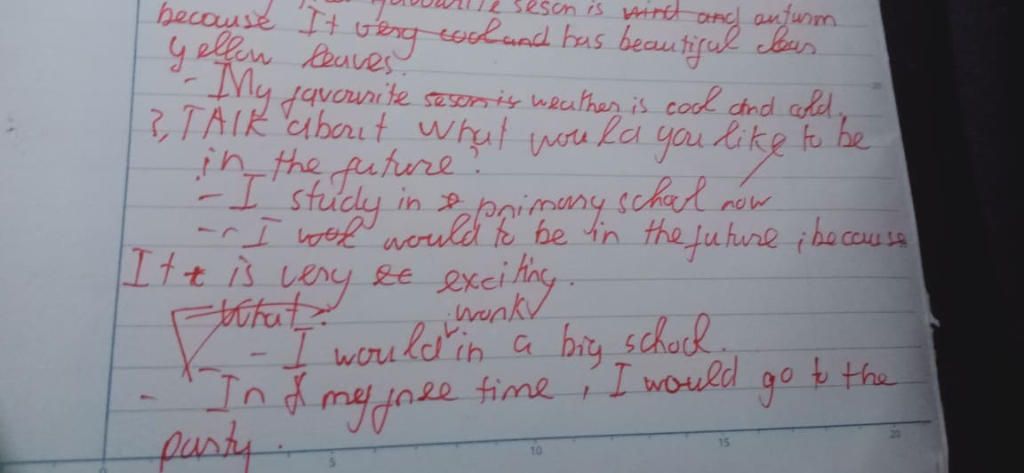 favourite seson is wind and autumn
because It very cool and has beautiful
yellow leaves.
- My favourite seson is weather is cool and cold.
?, TAlK about what would you like to be
in the future?
- I study in primary school now
- I would to be in the future , because
It is very exciting.
What?
work
- I would in a big school.
- In my free time , I would go to the
party.
5 10 15 20